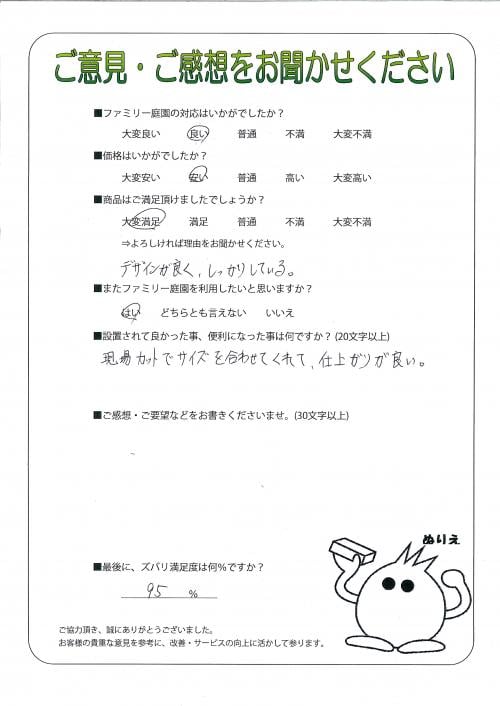 ご意見・ご感想をお聞かせください
■ファミリー庭園の対応はいかがでしたか？
大変良い 良い 普通 不満 大変不満
■価格はいかがでしたか？
大変安い 安い 普通 高い 大変高い
■商品はご満足頂けましたでしょうか？
大変満足 満足 普通 不満 大変不満
⇒よろしければ理由をお聞かせください。
デザインが良く、しっかりしている。
■またファミリー庭園を利用したいと思いますか？
はい どちらとも言えない いいえ
■設置されて良かった事、便利になった事は何ですか？(20文字以上)
現場カットでサイズを合わせてくれて、仕上ガリが良い。
■ご感想・ご要望などをお書きくださいませ。(30文字以上)
ぬりえ
■最後に、ズバリ満足度は何％ですか？
95 ％
ご協力頂き、誠にありがとうございました。
お客様の貴重な意見を参考に、改善・サービスの向上に活かして参ります。